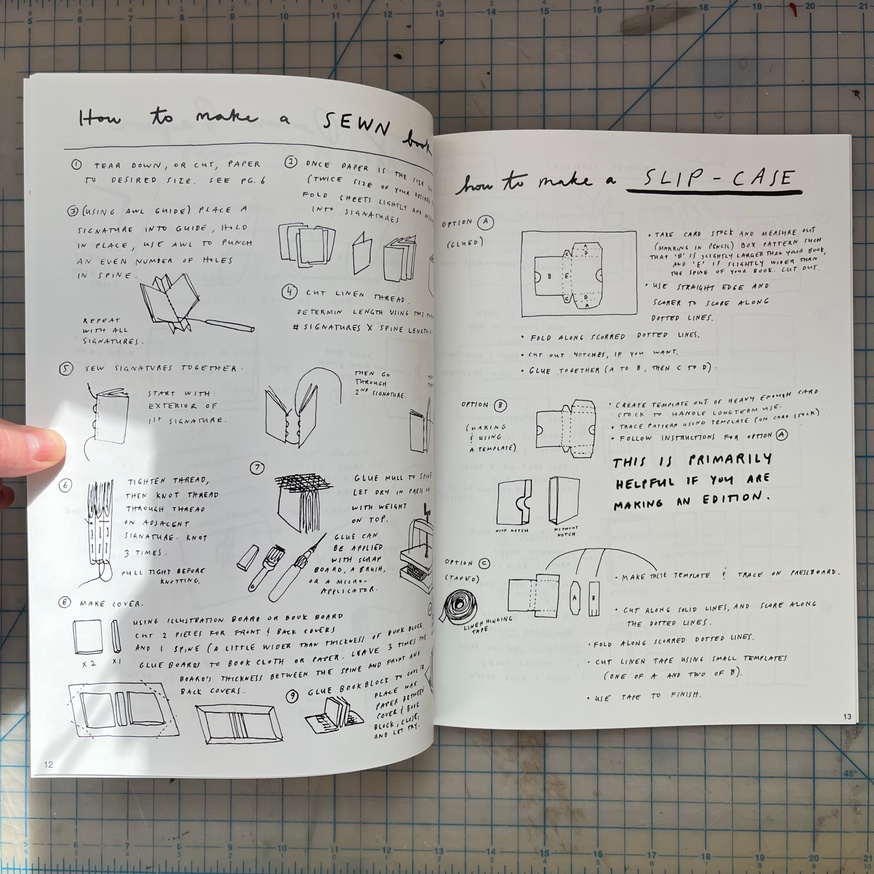 How to make a SEWN book
① TEAR DOWN, OR CUT, PAPER
TO DESIRED SIZE. SEE PG. 6
② ONCE PAPER IS THE SIZE
(TWICE SIZE OF YOUR DESIRED
FOLD SHEETS LIGHTLY AND
INTO SIGNATURES
③ (USING AWL GUIDE) PLACE A
SIGNATURE INTO GUIDE, HOLD
IN PLACE, USE AWL TO PUNCH
AN EVEN NUMBER OF HOLES
IN SPINE.
REPEAT
WITH ALL
SIGNATURES.
④ CUT LINEN THREAD.
DETERMIN LENGTH USING THIS
# SIGNATURES X SPINE LENGTH
⑤ SEW SIGNATURES TOGETHER.
START WITH
EXTERIOR OF
1ST SIGNATURE.
THEN GO
THROUGH
2ND SIGNATURE.
⑥ TIGHTEN THREAD,
THEN KNOT THREAD
THROUGH THREAD
ON ADJACENT
SIGNATURE. KNOT
3 TIMES.
PULL TIGHT BEFORE
KNOTTING.
⑦ GLUE MULL TO SPINE
LET DRY IN PRESS OR
WITH WEIGHT
ON TOP.
GLUE CAN
BE APPLIED
WITH SCRAP
BOARD, A BRUSH,
OR A MICRO-
APPLICATOR.
⑧ MAKE COVER.
USING ILLUSTRATION BOARD OR BOOK BOARD
CUT 2 PIECES FOR FRONT & BACK COVERS
AND 1 SPINE (A LITTLE WIDER THAN THICKNESS OF BOOK BLOCK.
GLUE BOARDS TO BOOK CLOTH OR PAPER. LEAVE 3 TIMES THE
BOARD'S THICKNESS BETWEEN THE SPINE AND FRONT AND
BACK COVERS.
X 2
X 1
⑨ GLUE BOOK BLOCK TO COVER
PLACE WAX
PAPER BETWEEN
COVER & BOOK
BLOCK, CLOSE,
AND LET DRY.
12
how to make a SLIP-CASE
OPTION Ⓐ
(GLUED)
• TAKE CARD STOCK AND MEASURE OUT
(MARKING IN PENCIL) BOX PATTERN SUCH
THAT "B" IS SLIGHTLY LARGER THAN YOUR BOOK,
AND "E" IS SLIGHTLY WIDER THAN
THE SPINE OF YOUR BOOK. CUT OUT.
• USE STRAIGHT EDGE AND
SCORER TO SCORE ALONG
DOTTED LINES.
• FOLD ALONG SCORRED DOTTED LINES.
• CUT OUT NOTCHES, IF YOU WANT.
• GLUE TOGETHER (A TO B, THEN C TO D).
OPTION Ⓑ
(MAKING
& USING
A TEMPLATE)
• CREATE TEMPLATE OUT OF HEAVY ENOUGH CARD
STOCK TO HANDLE LONGTERM USE.
• TRACE PATTERN USING TEMPLATE (ON CARD STOCK)
• FOLLOW INSTRUCTIONS FOR OPTION Ⓐ
THIS IS PRIMARILY
HELPFUL IF YOU ARE
MAKING AN EDITION.
WITH NOTCH
WITHOUT
NOTCH
OPTION Ⓒ
(TAPED)
LINEN HINGING
TAPE
• MAKE THIS TEMPLATE & TRACE ON PRESSBOARD.
• CUT ALONG SOLID LINES, AND SCORE ALONG
THE DOTTED LINES.
• FOLD ALONG SCORRED DOTTED LINES.
• CUT LINEN TAPE USING SMALL TEMPLATES
(ONE OF A AND TWO OF B).
• USE TAPE TO FINISH.
13